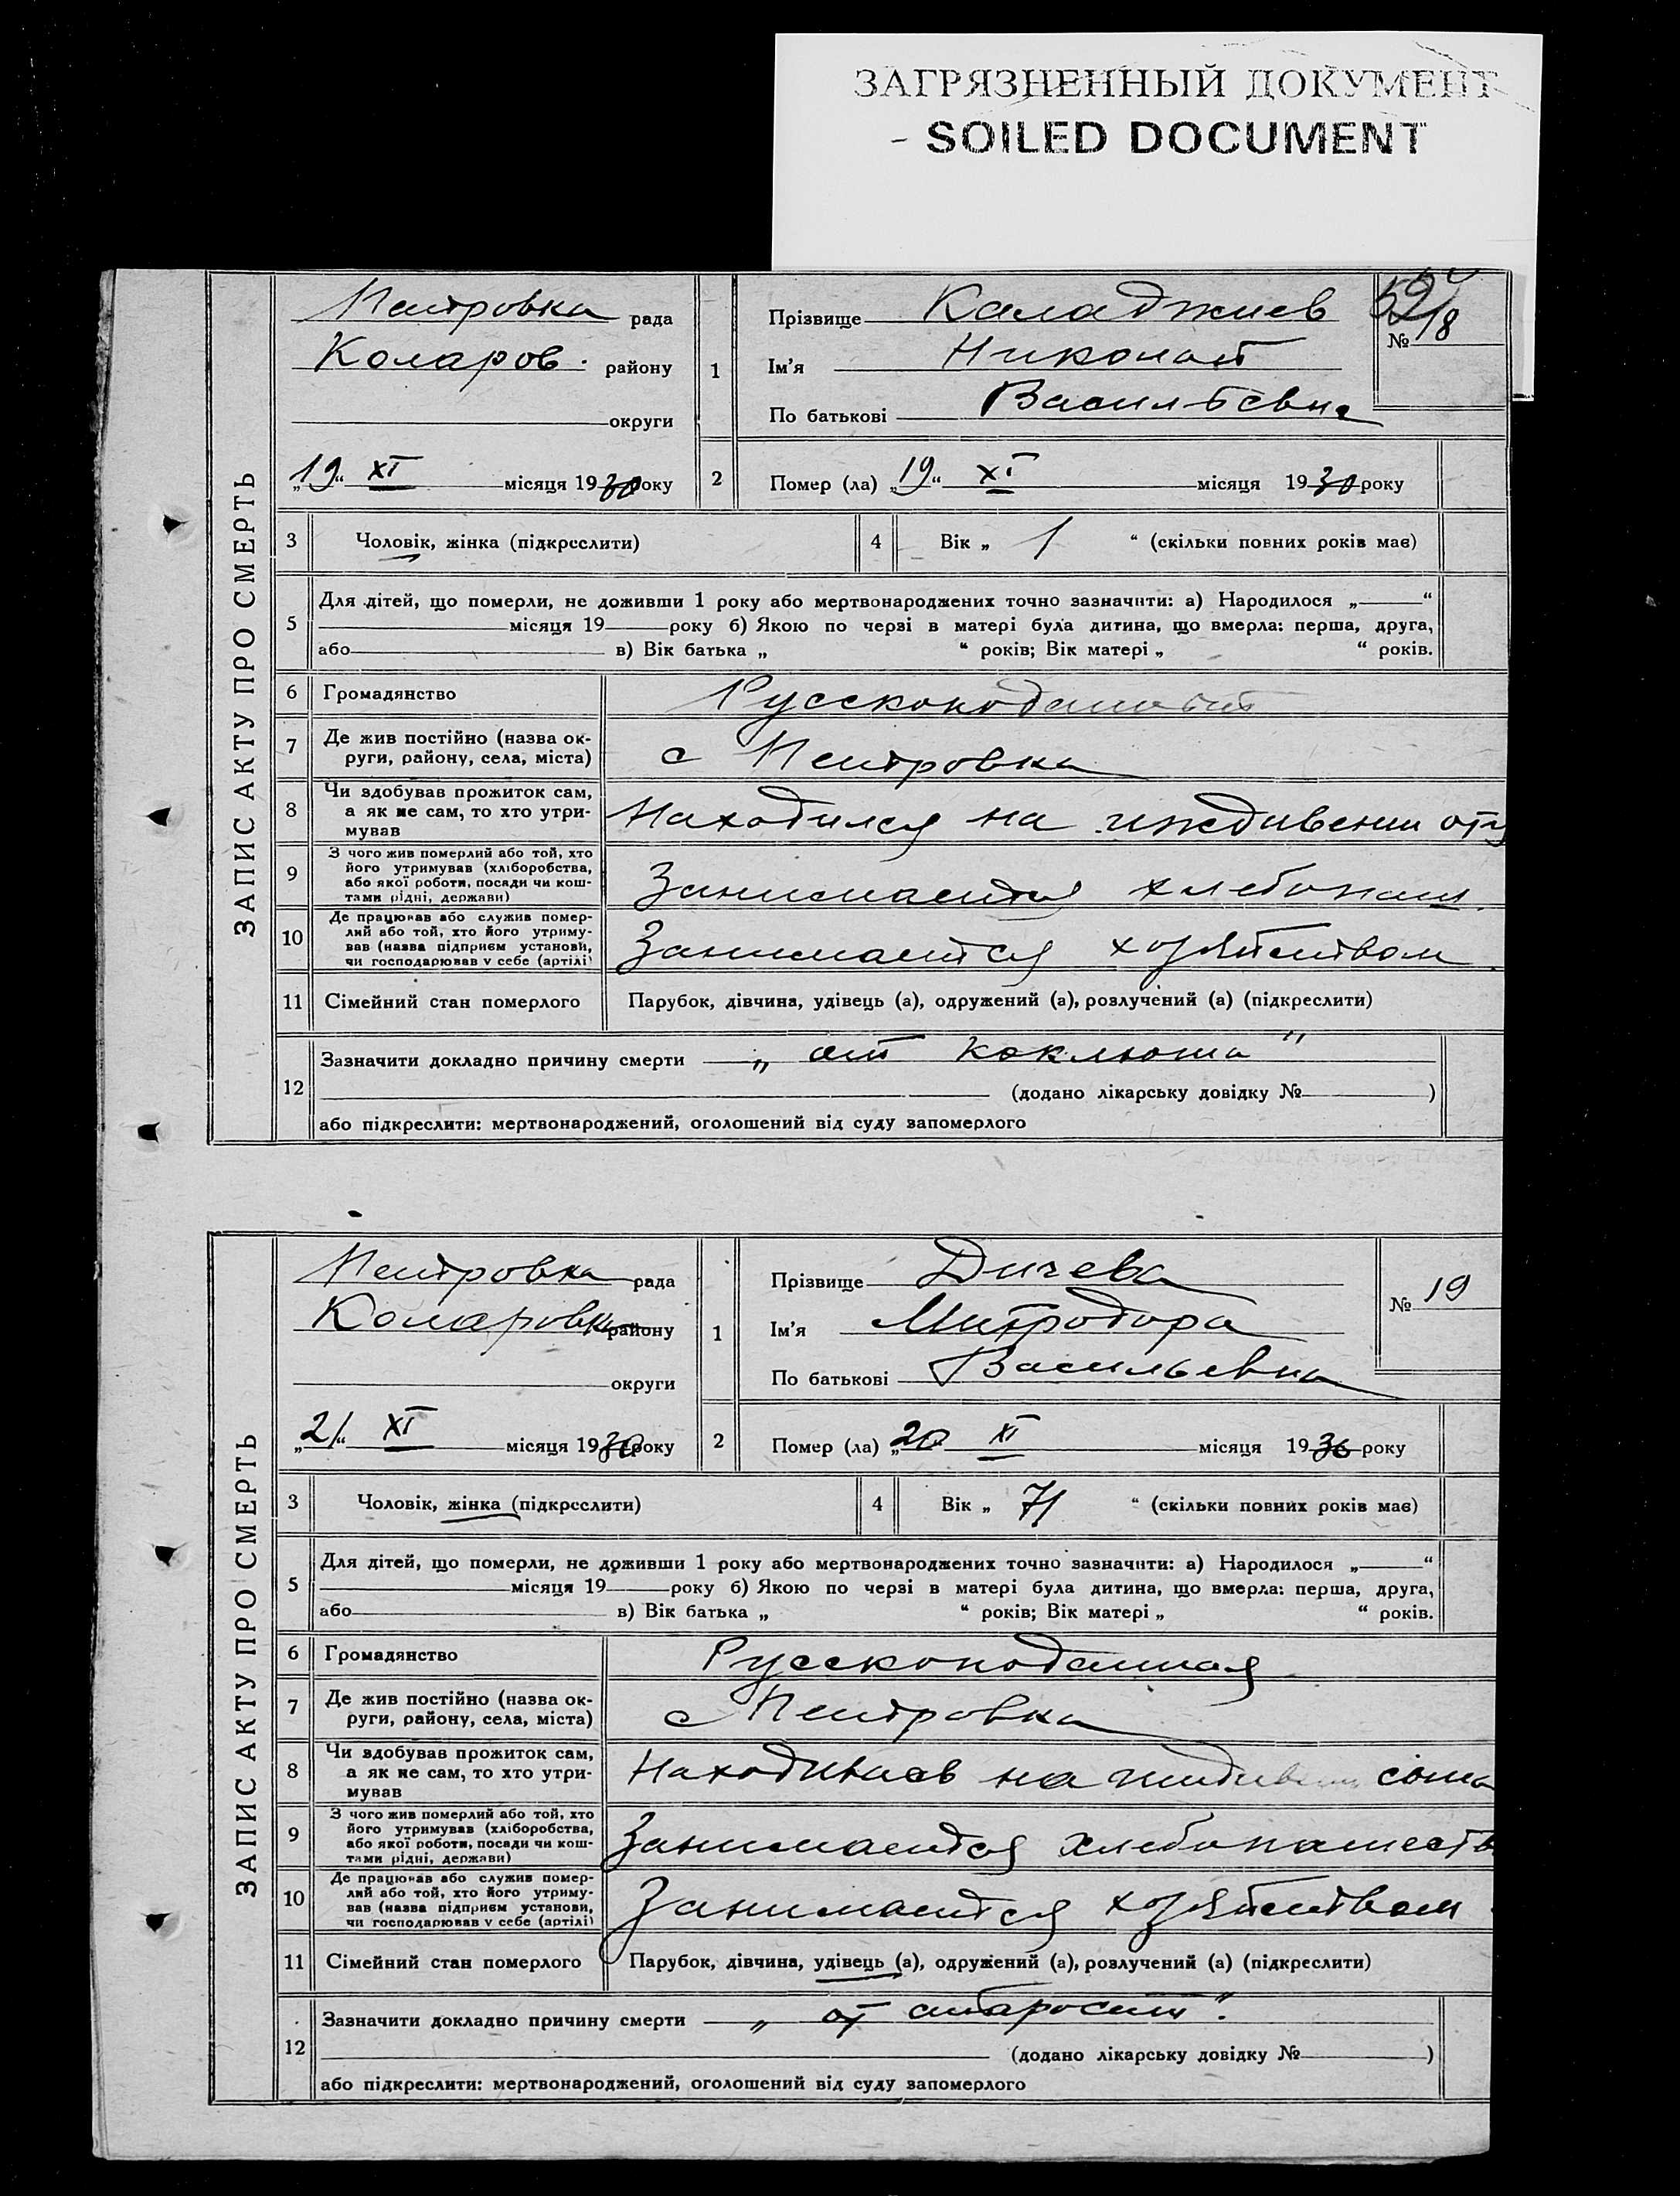 ЗАГРЯЗНЕННЫЙ ДОКУМЕНТ
- SOILED DOCUMENT
ЗАПИС АКТУ ПРО СМЕРТЬ
Петровка рада
Коларов. району
округи
„19“ XI місяця 1930 року
1
Прізвище Каладжиев
Ім'я Николай
По батькові Васильевич
№ 18
2
Помер (ла) „19“ XI місяця 1930 року
3 Чоловік, жінка (підкреслити)
4 Вік „ 1 “ (скільки повних років має)
5
Для дітей, що померли, не доживши 1 року або мертвонароджених точно зазначити: а) Народилося „ “
місяця 19 року б) Якою по черзі в матері була дитина, що вмерла: перша, друга,
або в) Вік батька „ “ років; Вік матері „ “ років.
6 Громадянство Русскоподанный
7 Де жив постійно (назва ок-
руги, району, села, міста) с Петровка
8 Чи здобував прожиток сам,
а як не сам, то хто утри-
мував
Находился на иждивении отц
9 З чого жив померлий або той, хто
його утримував (хліборобства,
або якої роботи, посади чи кош-
тами рідні, держави)
Занимается хлебопаш.
10 Де працював або служив помер-
лий або той, хто його утриму-
вав (назва підприєм установи,
чи господарював у себе (артілі)
Занимается хозяйством
11 Сімейний стан померлого Парубок, дівчина, удівець (а), одружений (а), розлучений (а) (підкреслити)
12 Зазначити докладно причину смерти „ от коклюша “
(додано лікарську довідку № )
або підкреслити: мертвонароджений, оголошений від суду запомерлого
ЗАПИС АКТУ ПРО СМЕРТЬ
Петровка рада
Коларовка району
округи
„21“ XI місяця 1930 року
1
Прізвище Дичева
Ім'я Митродора
По батькові Васильевна
№ 19
2
Помер (ла) „20 XI місяця 1930 року
3 Чоловік, жінка (підкреслити)
4 Вік „ 71 “ (скільки повних років має)
5
Для дітей, що померли, не доживши 1 року або мертвонароджених точно зазначити: а) Народилося „ “
місяця 19 року б) Якою по черзі в матері була дитина, що вмерла: перша, друга,
або в) Вік батька „ “ років; Вік матері „ “ років.
6 Громадянство Русскоподанная
7 Де жив постійно (назва ок-
руги, району, села, міста) с Петровка
8 Чи здобував прожиток сам,
а як не сам, то хто утри-
мував
Находилась на сына
9 З чого жив померлий або той, хто
його утримував (хліборобства,
або якої роботи, посади чи кош-
тами рідні, держави)
Занимается хлебопашеств
10 Де працював або служив помер-
лий або той, хто його утриму-
вав (назва підприєм установи,
чи господарював у себе (артілі)
Занимается хозяйством
11 Сімейний стан померлого Парубок, дівчина, удівець (а), одружений (а), розлучений (а) (підкреслити)
12 Зазначити докладно причину смерти „ от старости “.
(додано лікарську довідку № )
або підкреслити: мертвонароджений, оголошений від суду запомерлого